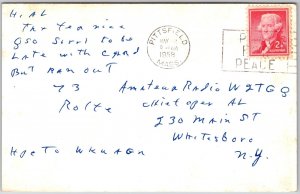 Hi, AL
Tnx fer nice
QSO Sorri to be
Late with card
But ran out
73
Rolfe
Hpe to wrk u agn
PITTSFIELD
MAY
1958
MASS.
P
F
PEACE
2¢
Amateur Radio W2TGQ
Chief opr AL
230 Main St
Whitesboro
N.Y.